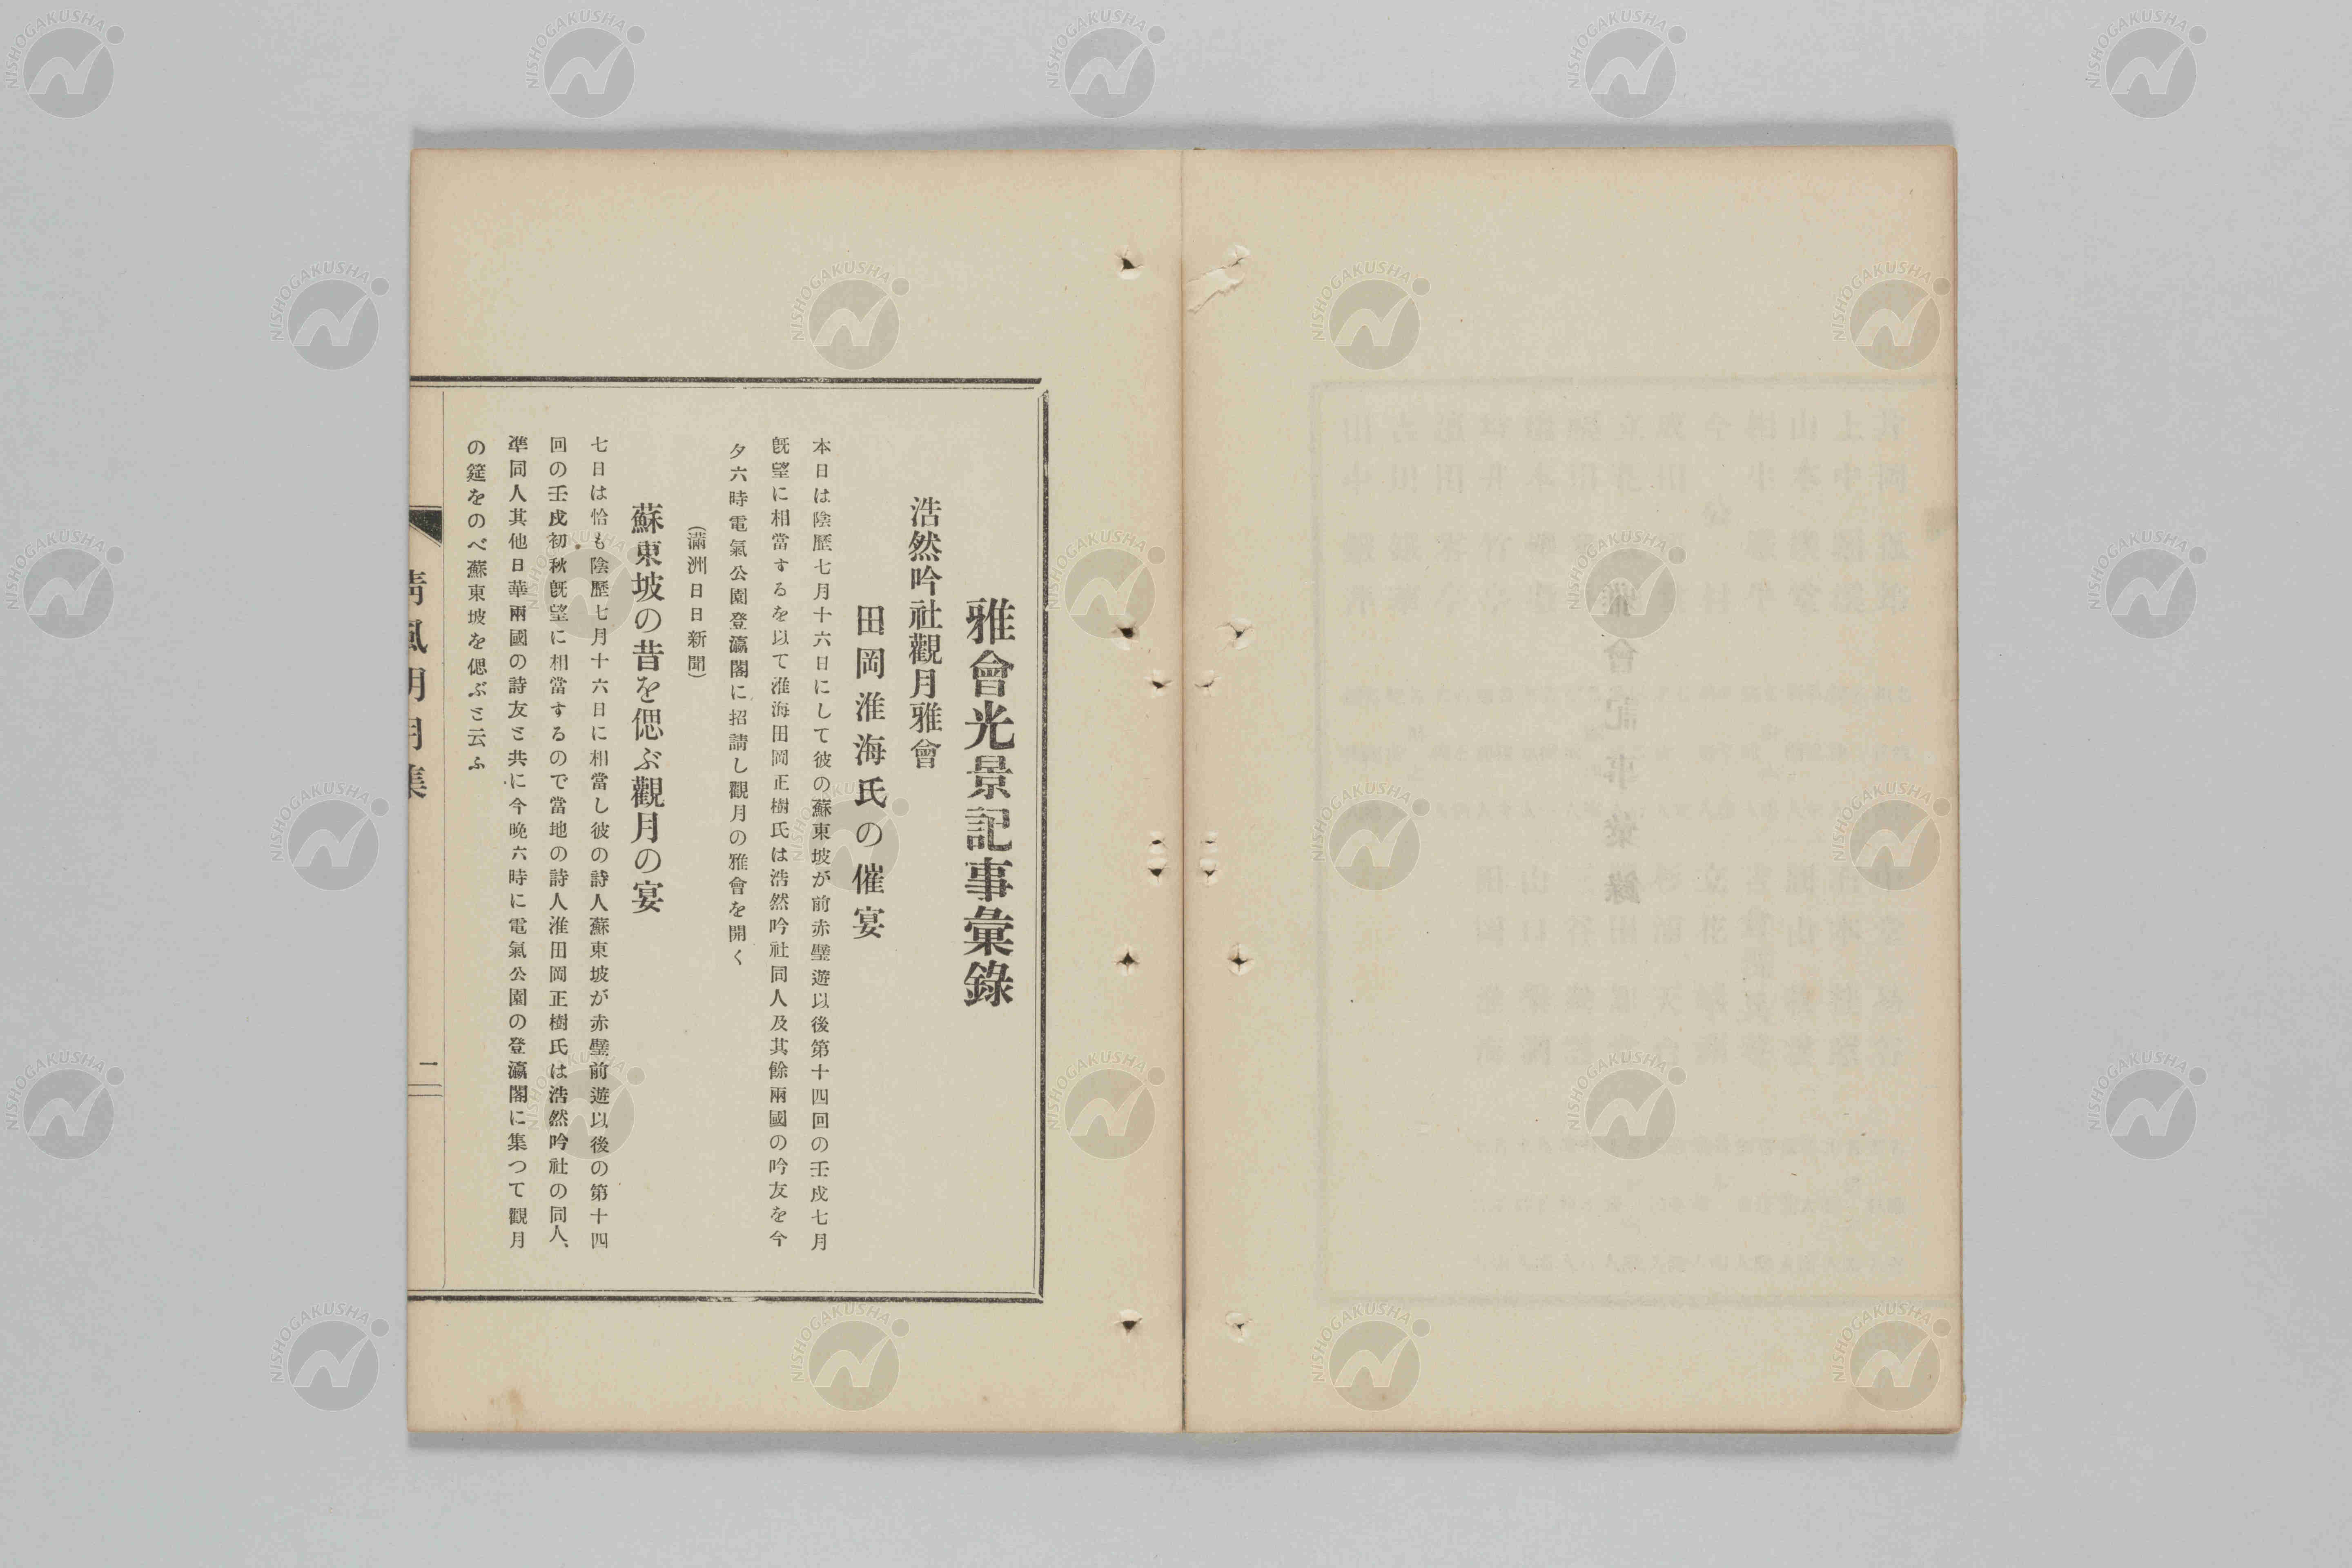 雅會光景記事彙錄
浩然吟社觀月雅會
田岡淮海氏の催宴
本日は陰歷七月十六日にして彼の蘇東坡が前赤壁遊以後第十四回の壬戌七月
旣望に相當するを以て淮海田岡正樹氏は浩然吟社同人及其餘兩國の吟友を今
夕六時電氣公園登瀛閣に招請し觀月の雅會を開く
(滿洲日日新聞)
蘇東坡の昔を偲ぶ觀月の宴
七日は恰も陰歷七月十六日に相當し彼の詩人蘇東坡が赤壁前遊以後の第十四
回の壬戌初秋旣望に相當するので當地の詩人淮田岡正樹氏は浩然吟社の同人、
準同人其他日華兩國の詩友と共に今晚六時に電氣公園の登瀛閣に集つて觀月
の筵をのべ蘇東坡を偲ぶと云ふ
淸風明月集
一
NISHOGAKUSHA